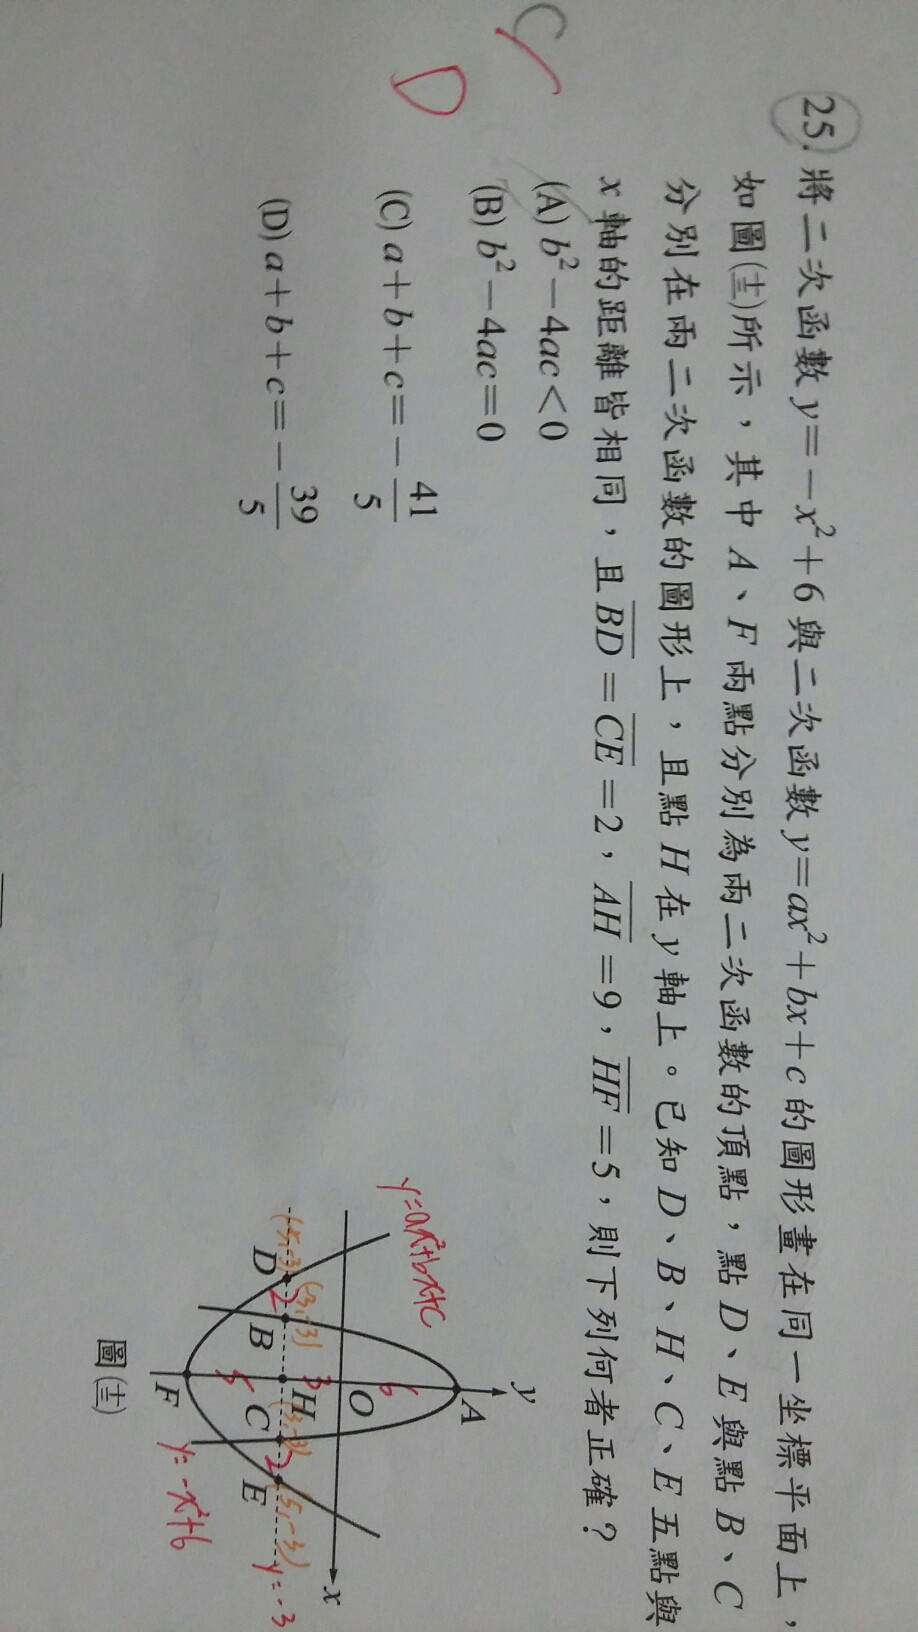 25. 將二次函數 y=-x²+6 與二次函數 y=ax²+bx+c 的圖形畫在同一坐標平面上，
如圖(十三)所示，其中 A、F 兩點分別為兩二次函數的頂點，點 D、E 與點 B、C
分別在兩二次函數的圖形上，且點 H 在 y 軸上。已知 D、B、H、C、E 五點與
x 軸的距離皆相同，且 BD=CE=2，AH=9，HF=5，則下列何者正確？
(A) b²-4ac<0
(B) b²-4ac=0
(C) a+b+c=-41/5
(D) a+b+c=-39/5
D
y
A
y=ax²+bx+c
6
O
x
3
(-5,-3)
(-3,-3)
(3,-3)
(5,-3)
y=-3
D
2
B
H
C
2
E
5
F
y=-x²+6
圖(十三)